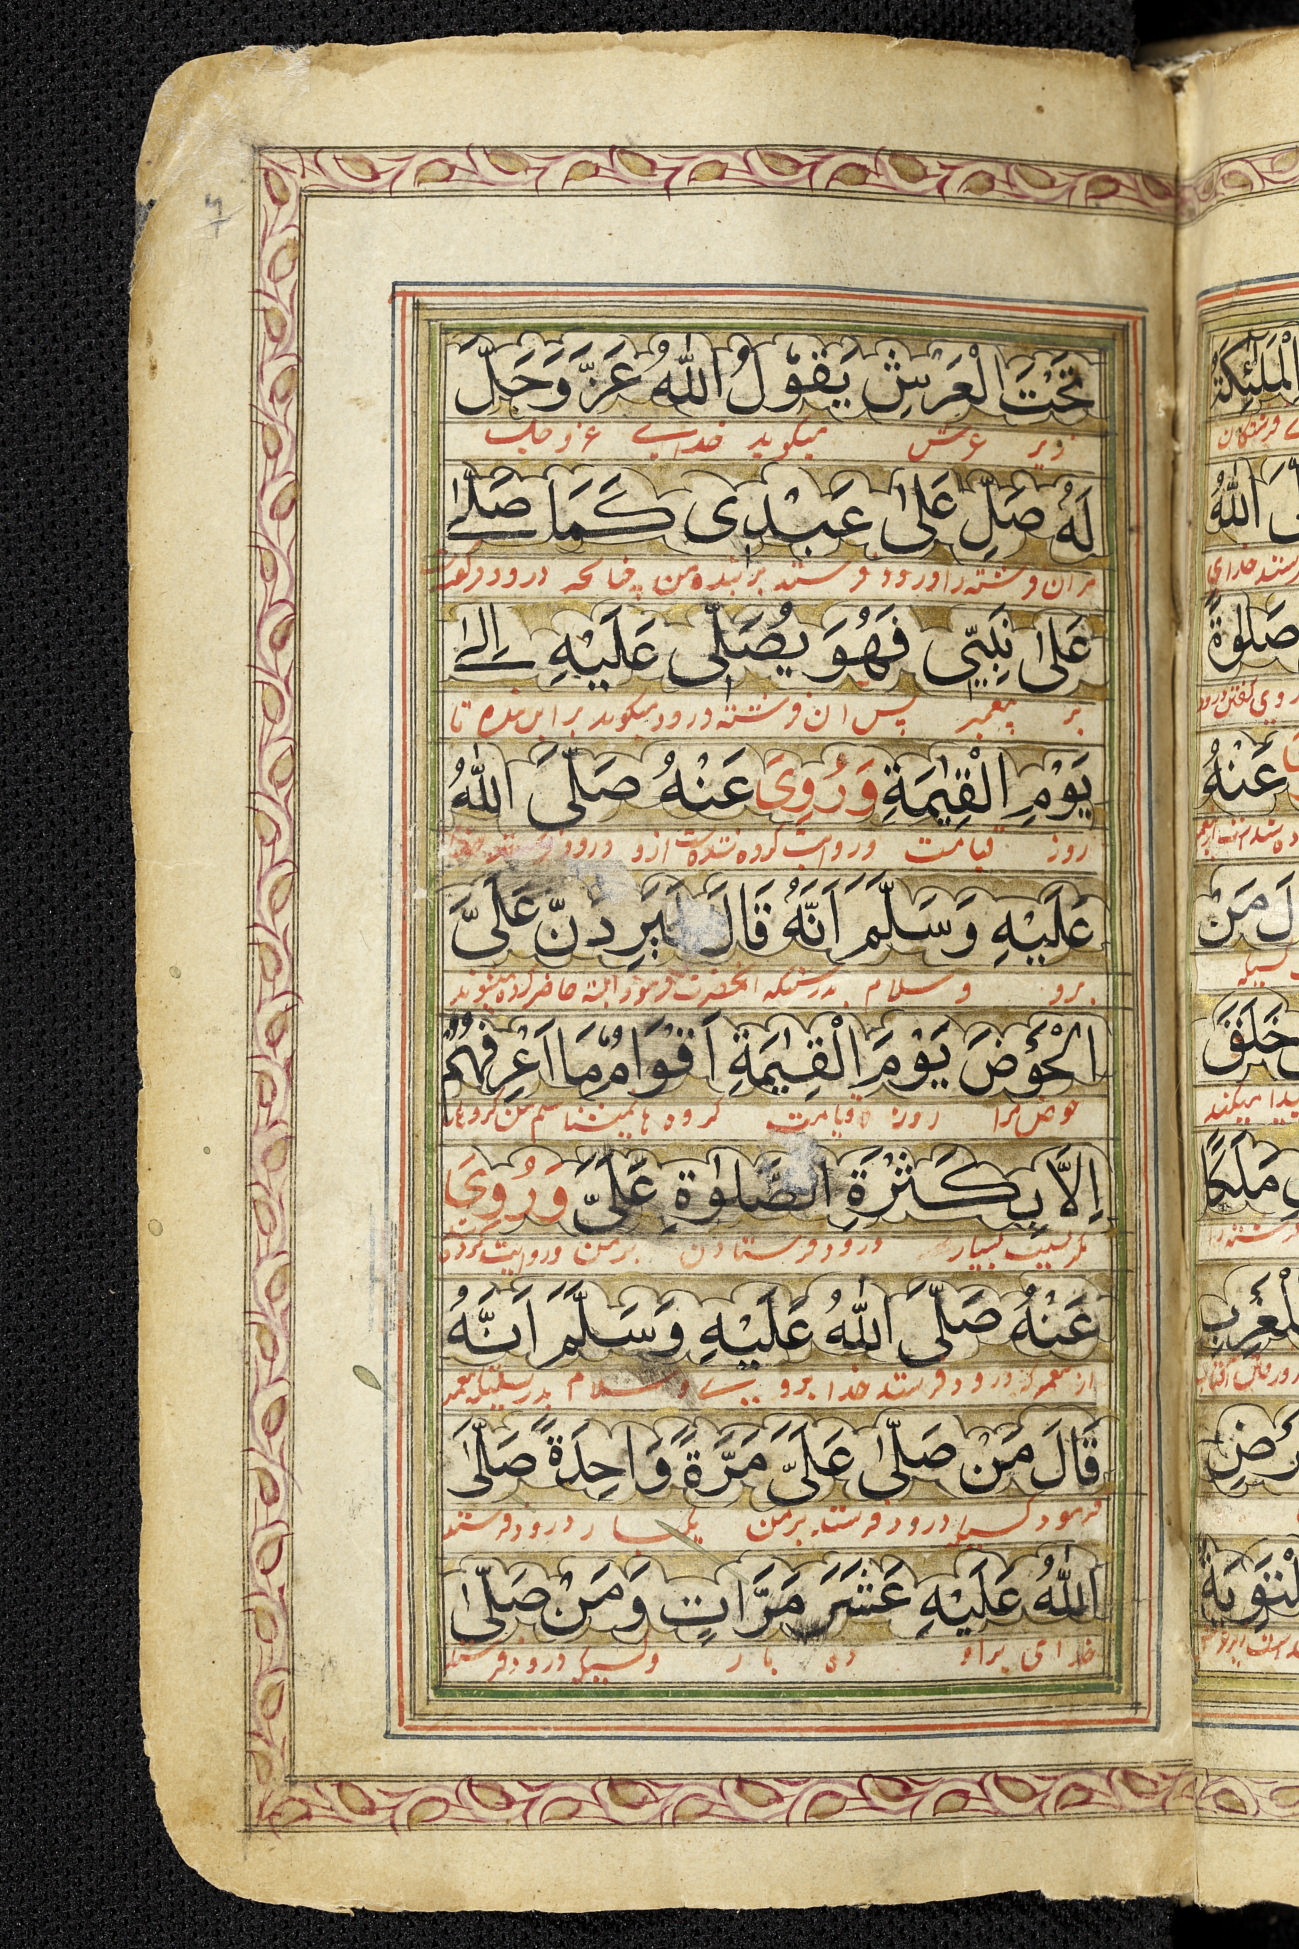 تَحْتَ الْعَرْشِ يَقُوْلُ اللّٰهُ عَزَّ وَجَلَّ
زیر عرش میکوید خداے عز وجل
لَهُ صَلِّ عَلٰى عَبْدِى كَمَا صَلّٰے
مران فرشته را درود فرست بر بنده من چنانکه درود
عَلٰى نَبِيِّى فَهُوَ يُصَلِّى عَلَيْهِ اِلٰے
بر پیغمبر پس ان فرشته درود میکوید بر این بنده تا
يَوْمِ الْقِيٰمَةِ وَرُوِىَ عَنْهُ صَلَّى اللّٰهُ
روز قیامت وروایت کرده شده است ازو درود
عَلَيْهِ وَسَلَّمَ اَنَّهُ قَالَ لَيَرِدَنَّ عَلَىَّ
برو وسلام بدرستیکه انحضرت فرمود البته حاضر کرده میشوند
الْحَوْضَ يَوْمَ الْقِيٰمَةِ اَقْوَامٌ مَا اَعْرِفُهُمْ
حوض مرا روز قیامت کروه ها نمیشناسم من کروه را
اِلَّا بِكَثْرَةِ الصَّلٰوةِ عَلَىَّ وَرُوِىَ
مکر بسبب بسیار درود فرستادن بر من وروایت کرده
عَنْهُ صَلَّى اللّٰهُ عَلَيْهِ وَسَلَّمَ اَنَّهُ
از درود فرستد خدا برو وسلام بدرستیکه
قَالَ مَنْ صَلّٰى عَلَىَّ مَرَّةً وَاحِدَةً صَلَّى
فرمود کسیکه درود فرستد بر من یکبار درود فرستد
اللّٰهُ عَلَيْهِ عَشَرَ مَرَّاتٍ وَمَنْ صَلّٰى
خدای براو ده بار وکسیکه درود فرستد